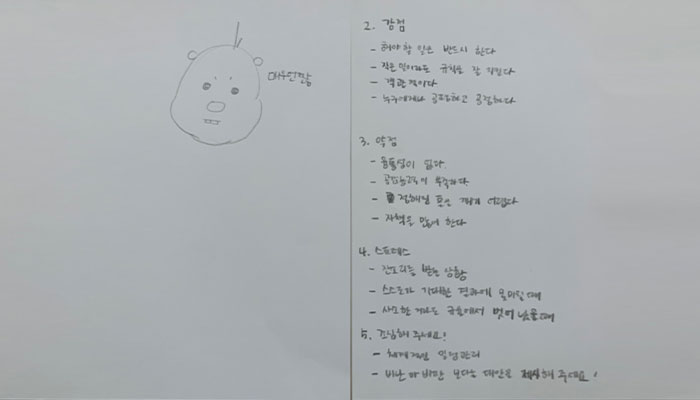 매우언짢음
2. 강점
- 해야할 일은 반드시 한다
- 작은 일이라도 규칙을 잘 지킨다
- 객관적이다
- 누구에게나 공평하고 공정하다
3. 약점
- 융통성이 없다.
- 공감능력이 부족하다.
- 정해진 틀은 깨기 어렵다
- 자책을 많이 한다
4. 스트레스
- 잔소리를 받는 상황
- 스스로가 기대한 결과에 못미칠 때
- 사소한 거라도 규율에서 벗어났을때
5. 조심해주세요!
- 체계적인 일정관리
- 비난과 비판 보다는 대안을 제시해 주세요!